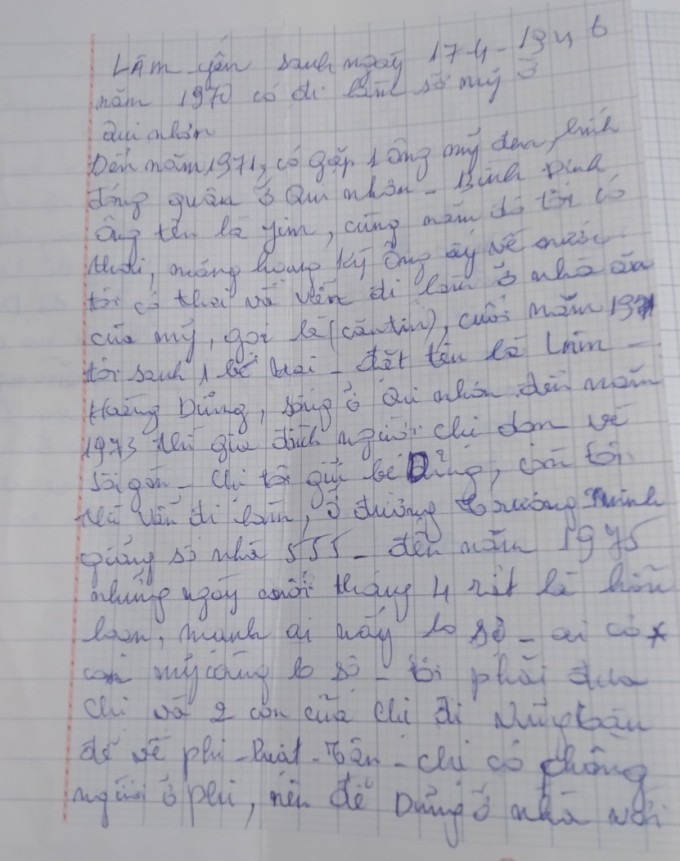 Lâm yến sanh ngày 17-4-1946
năm 1970 có đi làm sở mỹ ở
Qui nhơn
Đến năm 1971, có gặp 1 ông mỹ đen, lính
đóng quân ở Qui nhơn - Bình Định
ông tên là yim, cũng năm đó tôi có
thai, mãng ông ấy về nước
tôi có thai và vẫn đi làm ở nhà ăn
của mỹ, gọi là (căntin), cuối năm 1971
tôi sanh 1 bé trai - đặt tên là Lâm -
Hoàng Dũng, sống ở Qui nhơn đến năm
1973 thì gia đình người chị dọn về
Sài gòn - chị tôi giữ bé Dũng, còn tôi
thì vẫn đi làm, ở đường Trương Minh
giảng số nhà 555 - đến năm 1975
những ngày cuối tháng 4 rất là hỗn
loạn, mạnh ai nấy lo sợ - ai có
con mỹ càng lo sợ - tôi phải đưa
chị và 2 con của chị đi
để về phi-luật-Tân - chị có chồng
người ở phi, nên để Dũng ở nhà với